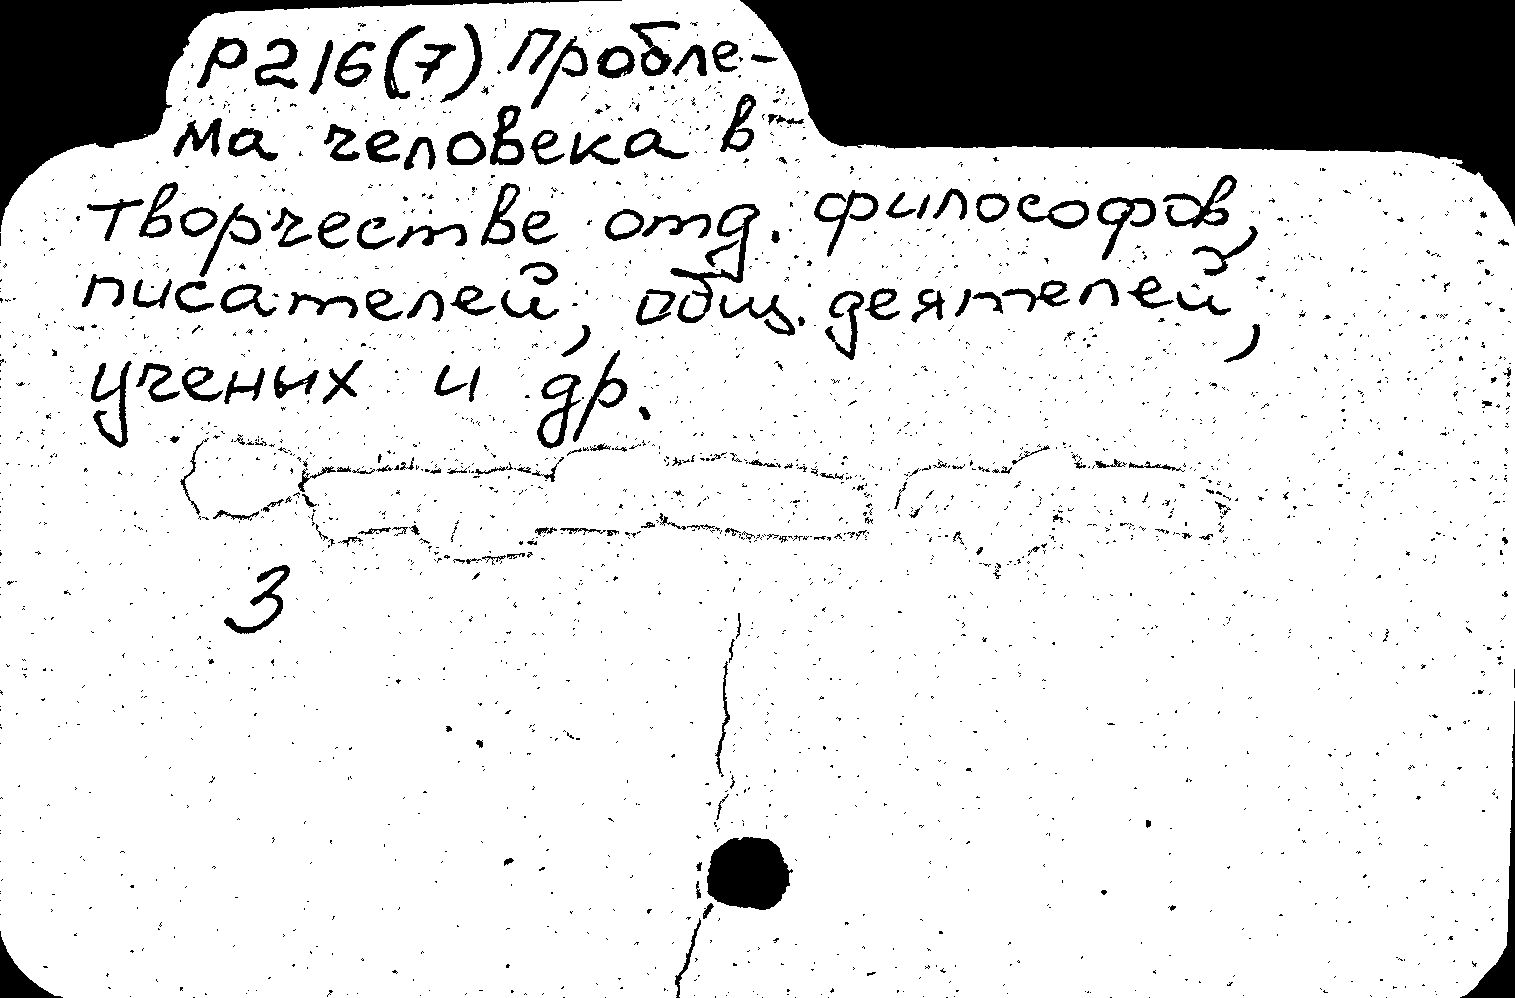 Р216(7) Пробле-
ма человека в
творчестве отд. философов,
писателей, общ. деятелей,
ученых и др.
3